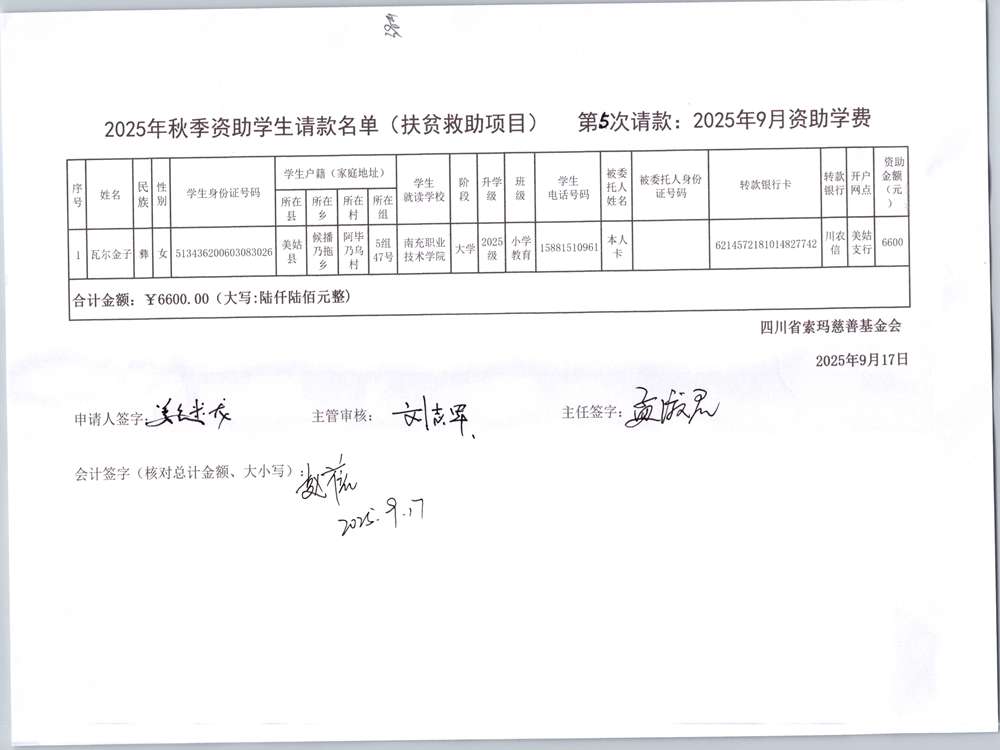 2025年秋季资助学生请款名单（扶贫救助项目） 第5次请款：2025年9月资助学费
序号 姓名 民族 性别 学生身份证号码 学生户籍（家庭地址） 学生就读学校 阶段 升学级 班级 学生电话号码 被委托人姓名 被委托人身份证号码 转款银行卡 转款银行 开户网点 资助金额（元）
所在县 所在乡 所在村 所在组
1 瓦尔金子 彝 女 513436200603083026 美姑县 候播乃拖乡 阿毕乃乌村 5组47号 南充职业技术学院 大学 2025级 小学教育 15881510961 本人卡 6214572181014827742 川农信 美姑支行 6600
合计金额：￥6600.00（大写:陆仟陆佰元整)
四川省索玛慈善基金会
2025年9月17日
申请人签字： 主管审核： 刘志军 主任签字： 孟淑君
会计签字（核对总计金额、大小写）：
2025.9.17